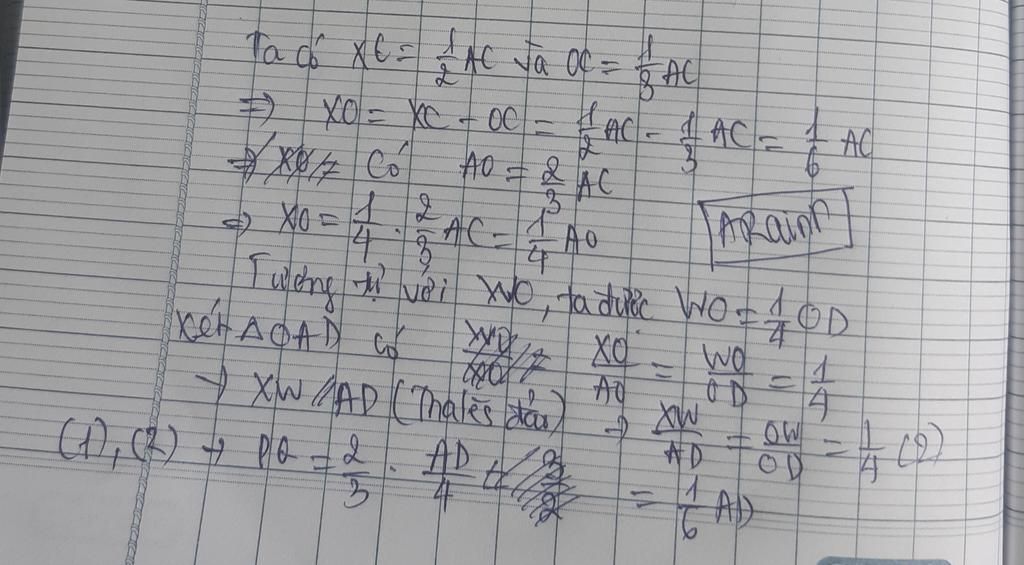 Ta có XC = 1/2 AC và OC = 1/3 AC
=> XO = XC - OC = 1/2 AC - 1/3 AC = 1/6 AC
=> Có AO = 2/3 AC
=> XO = 1/4 . 2/3 AC = 1/4 AO
Tương tự với WO, ta được WO = 1/4 OD
Xét ΔOAD có XO/AO = WO/OD = 1/4
→ XW // AD (Thalès đảo) → XW/AD = OW/OD = 1/4 (2)
(1), (2) → PQ = 2/3 . AD/4 = 1/6 AD